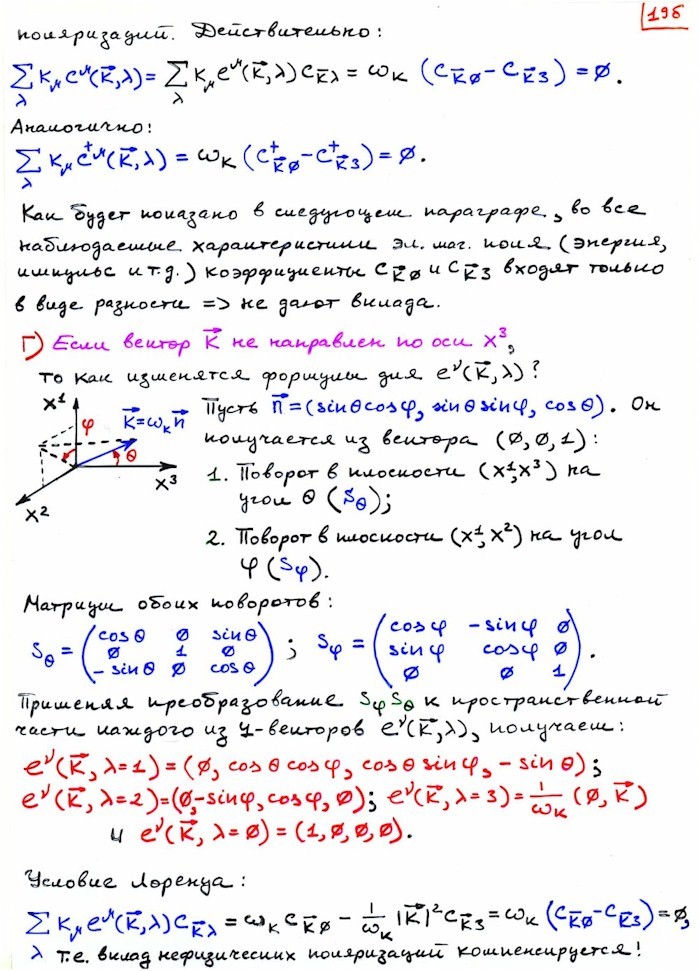 19б
поляризаций. Действительно:
∑_λ K_μ C^μ(K⃗,λ) = ∑_λ K_μ e^μ(K⃗,λ) C_{K⃗λ} = ω_K (C_{K⃗0} - C_{K⃗3}) = 0.
Аналогично:
∑_λ K_μ C^{+μ}(K⃗,λ) = ω_K (C^+_{K⃗0} - C^+_{K⃗3}) = 0.
Как будет показано в следующем параграфе, во все
наблюдаемые характеристики эл. маг. поля (энергия,
импульс и т.д.) коэффициенты C_{K⃗0} и C_{K⃗3} входят только
в виде разности => не дают вклада.
Г) Если вектор K⃗ не направлен по оси X^3,
то как изменятся формулы для e^ν(K⃗,λ)?
X^1 φ K⃗=ω_K n⃗ θ X^3 X^2
Пусть n⃗=(sinθcosφ, sinθsinφ, cosθ). Он
получается из вектора (0,0,1):
1. Поворот в плоскости (X^1,X^3) на
угол θ (S_θ);
2. Поворот в плоскости (X^1,X^2) на угол
φ (S_φ).
Матрицы обоих поворотов:
S_θ = (cosθ 0 sinθ; 0 1 0; -sinθ 0 cosθ) ; S_φ = (cosφ -sinφ 0; sinφ cosφ 0; 0 0 1).
Применяя преобразование S_φ S_θ к пространственной
части каждого из 4-векторов e^ν(K⃗,λ), получаем:
e^ν(K⃗, λ=1) = (0, cosθ cosφ, cosθ sinφ, -sinθ);
e^ν(K⃗, λ=2) = (0, -sinφ, cosφ, 0); e^ν(K⃗, λ=3) = 1/ω_K (0, K⃗)
и e^ν(K⃗, λ=0) = (1,0,0,0).
Условие Лоренца:
∑_λ K_μ e^μ(K⃗,λ) C_{K⃗λ} = ω_K C_{K⃗0} - 1/ω_K |K⃗|^2 C_{K⃗3} = ω_K (C_{K⃗0} - C_{K⃗3}) = 0,
т.е. вклад нефизических поляризаций компенсируется!